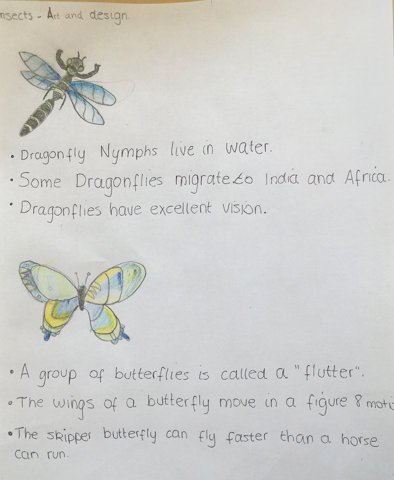 nsects - Art and design.
• Dragonfly Nymphs live in water.
• Some Dragonflies migrate to India and Africa.
• Dragonflies have excellent vision.
• A group of butterflies is called a "flutter".
• The wings of a butterfly move in a figure 8 moti
• The skipper butterfly can fly faster than a horse
can run.